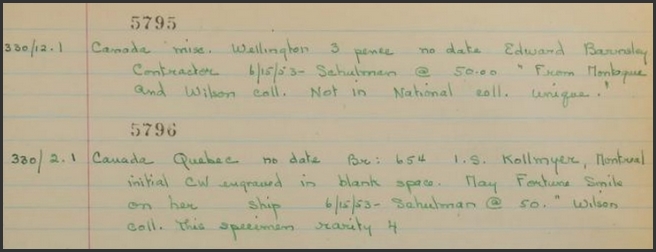 5795
330/12.1 Canada misc. Wellington 3 pence no date Edward Barnsley
Contractor 6/15/53- Schulman @ 50.00 "From Montague
and Wilson coll. Not in National coll. unique."
5796
330/2.1 Canada Quebec no date Br: 654 I.S. Kollmyer, Montreal
initial CW engraved in blank space. May Fortune Smile
on her ship 6/15/53- Schulman @ 50. " Wilson
coll. This specimen rarity 4